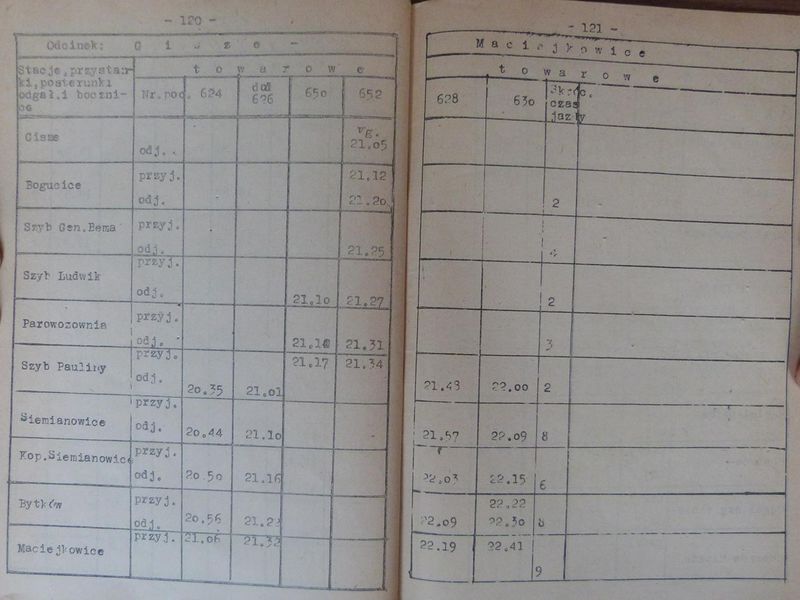 - 120 -
Odcinek: G i s z e -
Stacje, przystan-
ki, posterunki
odgał. i boczni-
ce
t o w a r o w e
Nr. poc. 624 626 650 652
Gisze Vg.
odj. . 21.05
Bogucice przyj. 21.12
odj. 21.20
Szyb Gen. Bema przyj.
odj. 21.25
Szyb Ludwik przyj.
odj. 21.10 21.27
Parowozownia przyj.
odj. 21.14 21.31
Szyb Pauliny przyj. 21.17 21.34
odj. 20.35 21.01
Siemianowice przyj.
odj. 20.44 21.10
Kop. Siemianowice przyj.
odj. 20.50 21.16
Bytków przyj.
odj. 20.56 21.23
Maciejkowice przyj. 21.06 21.32
- 121 -
M a c i e j k o w i c e
t o w a r o w e
628 630 Skróc.
czas
jazdy
2
4
2
3
21.43 22.00 2
21.57 22.09 8
22.03 22.15 6
22.22
22.09 22.30 8
22.19 22.41
9